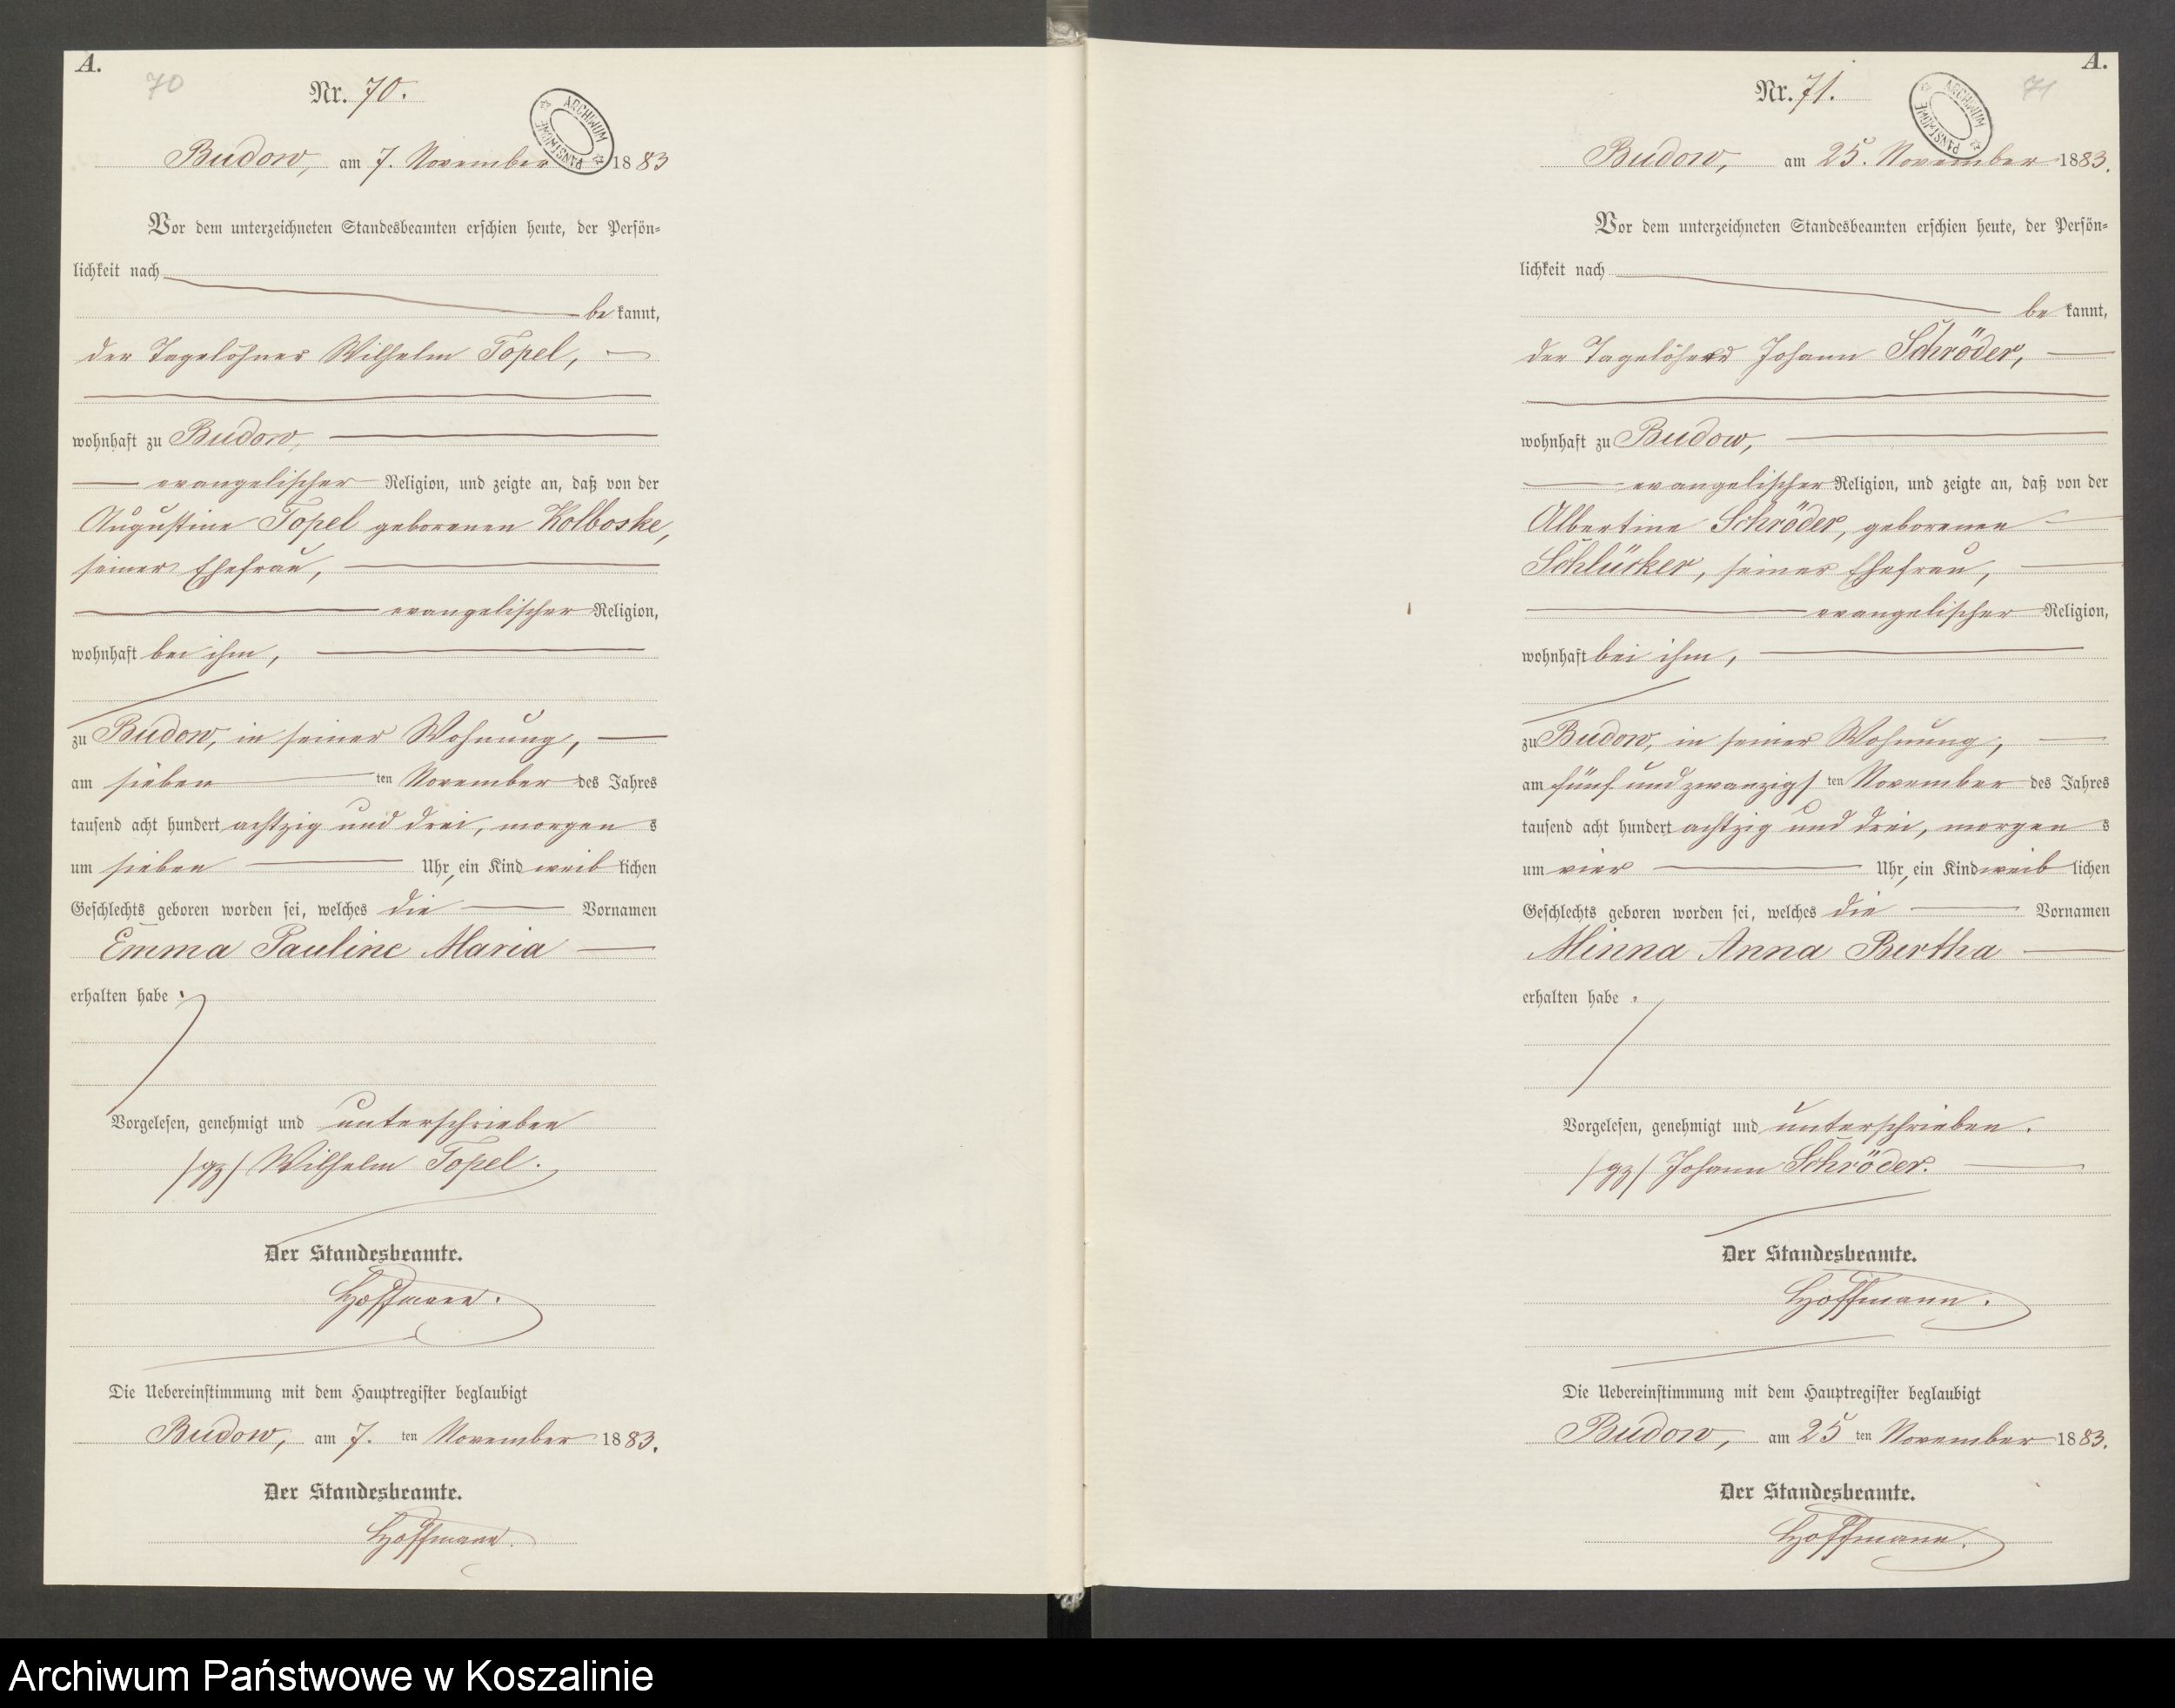 A.
70
Nr. 70.
ARCHIWUM PAŃSTWOWE
Budow, am 7. November 1883
Vor dem unterzeichneten Standesbeamten erschien heute, der Persön-
lichkeit nach
be kannt,
der Tagelöhner Wilhelm Topel,
wohnhaft zu Budow,
evangelischer Religion, und zeigte an, daß von der
Augustine Topel geborenen Kolboske,
seiner Ehefrau,
evangelischer Religion,
wohnhaft bei ihm,
zu Budow, in seiner Wohnung,
am sieben ten November des Jahres
tausend acht hundert achtzig und drei, morgen s
um sieben Uhr, ein Kind weib lichen
Geschlechts geboren worden sei, welches die Vornamen
Emma Pauline Maria
erhalten habe.
Vorgelesen, genehmigt und unterschrieben
/gz/ Wilhelm Topel.
Der Standesbeamte.
Hoffmann.
Die Uebereinstimmung mit dem Hauptregister beglaubigt
Budow, am 7. ten November 1883.
Der Standesbeamte.
Hoffmann.
A.
71
Nr. 71.
ARCHIWUM PAŃSTWOWE
Budow, am 25. November 1883.
Vor dem unterzeichneten Standesbeamten erschien heute, der Persön-
lichkeit nach
be kannt,
der Tagelöhner Johann Schröder,
wohnhaft zu Budow,
evangelischer Religion, und zeigte an, daß von der
Albertine Schröder, geborenen
Schlücker, seiner Ehefrau,
evangelischer Religion,
wohnhaft bei ihm,
zu Budow, in seiner Wohnung,
am fünf und zwanzigs ten November des Jahres
tausend acht hundert achtzig und drei, morgen s
um vier Uhr, ein Kind weib lichen
Geschlechts geboren worden sei, welches die Vornamen
Minna Anna Bertha
erhalten habe.
Vorgelesen, genehmigt und unterschrieben.
/gz/ Johann Schröder.
Der Standesbeamte.
Hoffmann.
Die Uebereinstimmung mit dem Hauptregister beglaubigt
Budow, am 25 ten November 1883.
Der Standesbeamte.
Hoffmann.
Archiwum Państwowe w Koszalinie